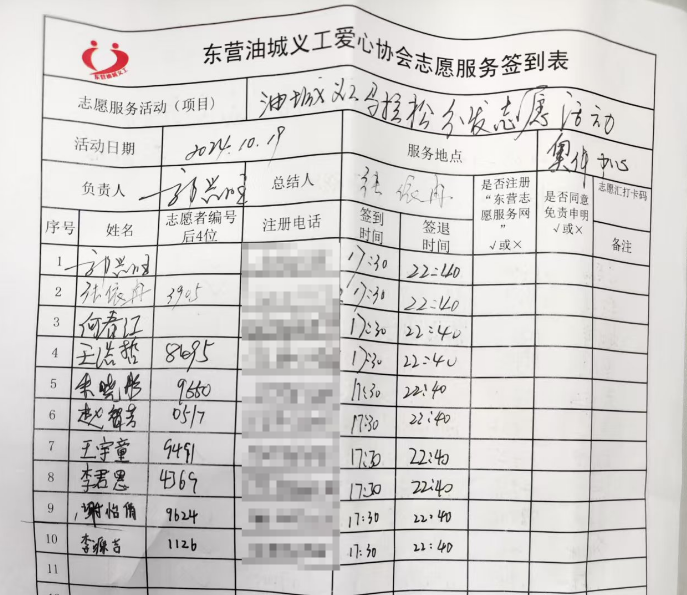 东营油城义工
东营油城义工爱心协会志愿服务签到表
志愿服务活动（项目） 油城义工马拉松分发志愿活动
活动日期 2024.10.19 服务地点 奥体中心
负责人 总结人 张依丹 是否注册“东营志愿服务网”√或× 是否同意免责申明√或× 志愿汇打卡码
序号 姓名 志愿者编号后4位 注册电话 签到时间 签退时间 备注
1 17:30 22:40
2 张依丹 3905 17:30 22:40
3 何春江 17:30 22:40
4 王浩哲 8695 17:30 22:40
5 朱晓彤 9660 17:30 22:40
6 赵智芳 0517 17:30 22:40
7 王宇童 9491 17:30 22:40
8 李君恩 4369 17:30 22:40
9 谢怡倩 9624 17:30 22:40
10 1126 17:30 22:40
11